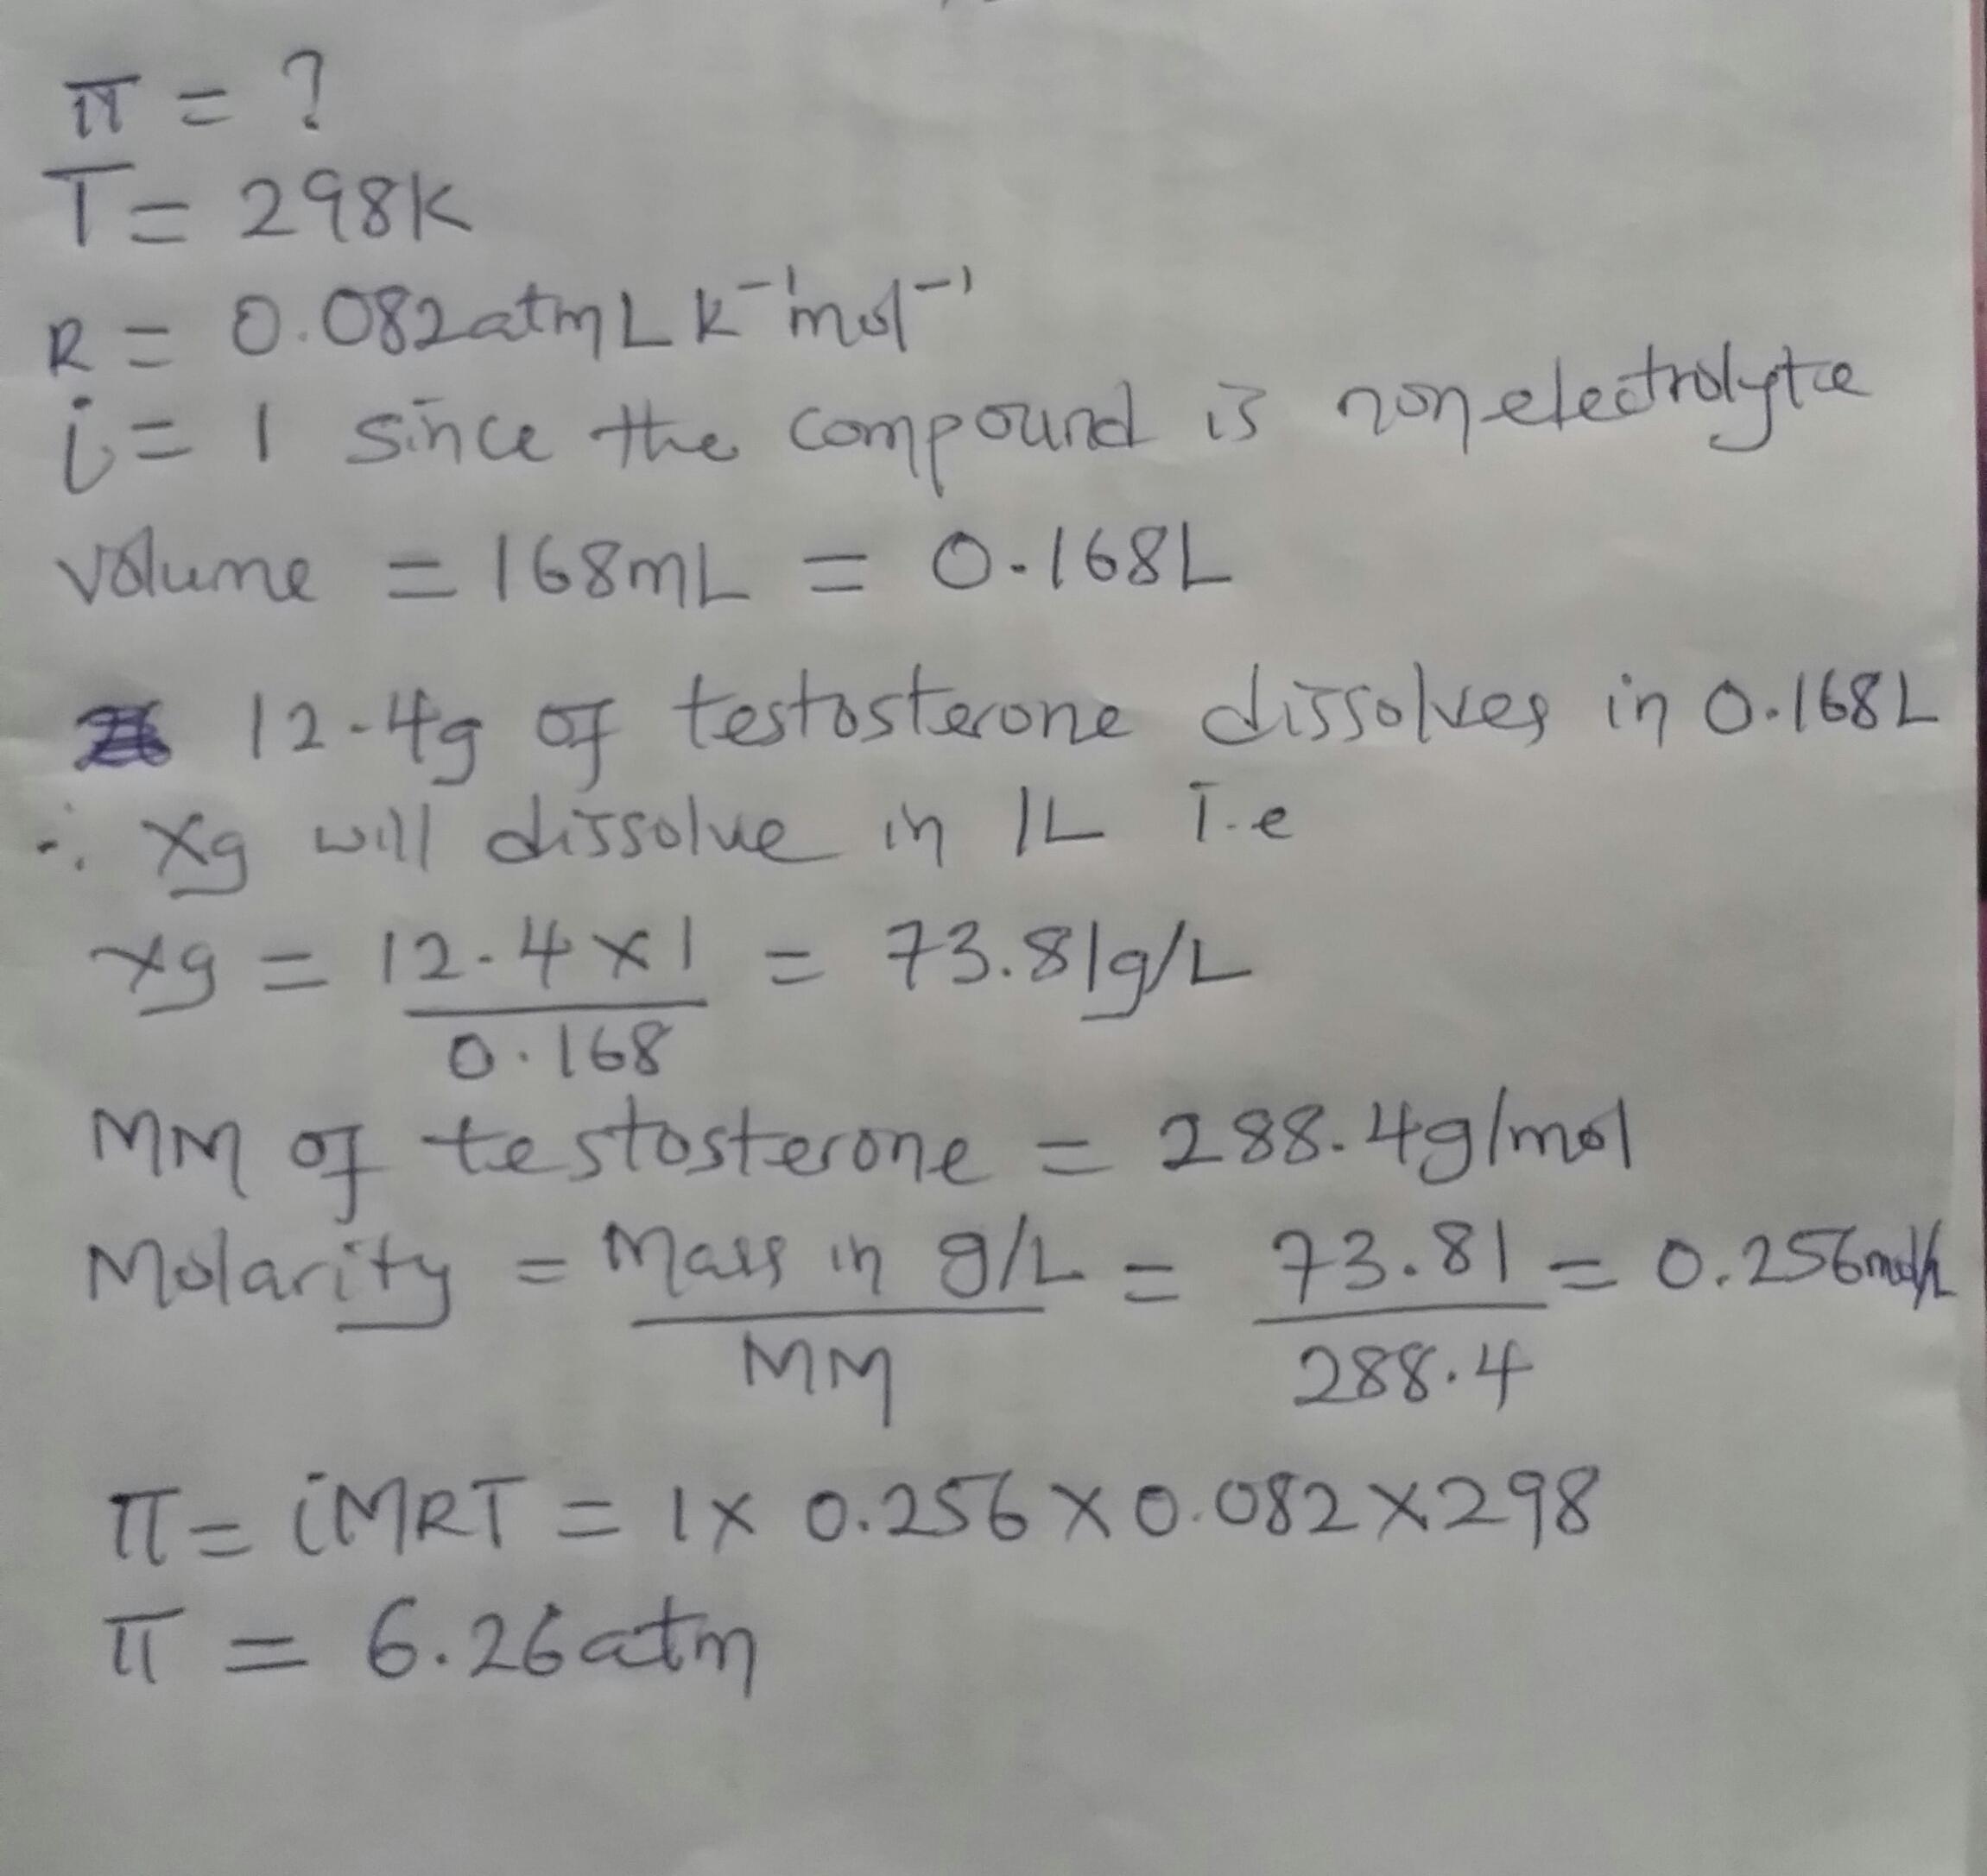 π = ?
T = 298K
R = 0.082atm L K⁻¹mol⁻¹
i = 1 since the compound is nonelectrolyte
volume = 168mL = 0.168L
12.4g of testosterone dissolves in 0.168L
∴ xg will dissolve in 1L i.e
xg = 12.4 x 1 = 73.81g/L
0.168
MM of testosterone = 288.4g/mol
Molarity = Mass in g/L = 73.81 = 0.256mol/L
MM 288.4
π = iMRT = 1 x 0.256 x 0.082 x 298
π = 6.26atm